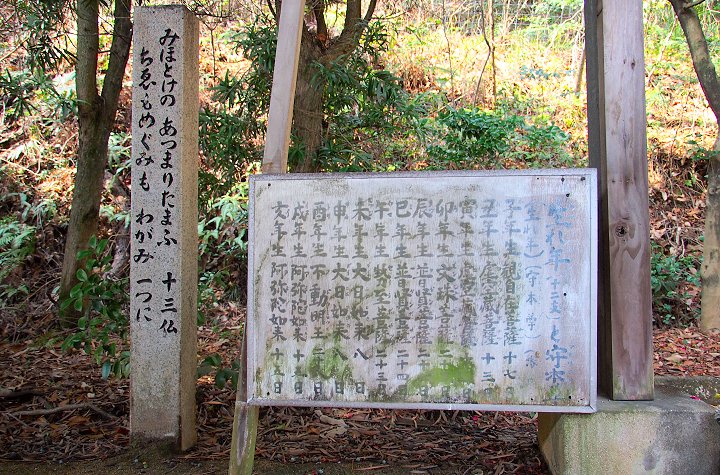 みほとけの あつまりたまふ 十三仏
ちゑもめぐみも わがみ一つに
生れ年(十二支)と守本
(生れ年) (守本尊)
子年生 観自在菩薩 十七日
丑年生 虚空蔵菩薩 十三
寅年生 虚空蔵菩薩
卯年生 文珠菩薩 二十
辰年生 普賢菩薩 二十
巳年生 普賢菩薩 二十四
午年生 勢至菩薩 二十三
未年生 大日如来 八日
申年生 大日如来 八日
酉年生 不動明王 二 日
戌年生 阿弥陀如来 十五日
亥年生 阿弥陀如来 十五日